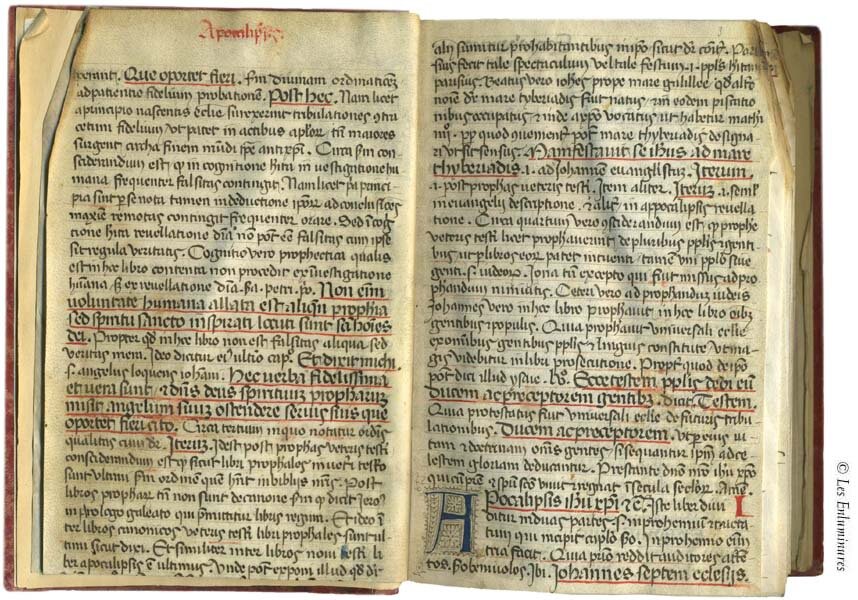 Apocalipsis.
Que oportet fieri. sm diuinam ordinationem
ad patientie fidelium probationem. Post hec. Nam licet
a principio nascentis ecclie surrexerint tribulationes contra
cetum fidelium vt patet in actibus aplor. tn maiores
surgent circha finem mundi tpe antixpi. Circa sm con
siderandum est q in cognitione hita in vestigatione hu
mana frequenter falsitas contingit. Nam licet pa princi
pia sint per se nota tamen in deductione ipor ad conclusiones
maxime remotas contingit frequenter errare. Sed in cog
tione hita reuellatione diuina no pot ee falsitas cum ipse
sit regula veritatis. Cognitio vero prophetica qualis
est in hoc libro contenta non procedit ex inuestigatione
humana s ex reuellatione diuina. Petri. po. Non enim
voluntate humana allata est aliqn prophia
sed spiritu sancto inspirati locuti sunt sci hoies
dei. Propter qd in hoc libro non est falsitas aliqua sed
veritas mera. Ideo dicitur ei ultio cap. Et dixit michi
s. angelus loquens iohani. Hec verba fidelissima
et vera sunt et dns deus spirituum prophetarum
misit angelum suum ostendere seruis suis que
oportet fieri cito. Circa tertium in quo notatur ordinis
qualitas cum dr. Iterum. Idest post prophetas veteris testi
considerandum est q sicut libri prophetales in veteri testo
sunt ultimi sm ordinem quem hnt in bibliis nris. Post
libros prophetar tn non sunt de canone sm q dicit Iero
in prologo galeato qui premittitur libris regum. Et ideo in
ter libros canonicos veteris testi libri prophetales sunt ul
timi sicut dixi. Et similiter inter libros noui testi li
ber apocalipsis e ultimus. Vnde pot exponi illud qd dr
alij sumitur pro habitantibus in ipso sicut dr
sus fecit tale spectaculum vel tale festum .i. ppls
parisius. Beatus vero iohes prope mare galillee qd alio
noie dr mare tyberiadis fuit natus et in eodem piscatio
nibus occupatus et inde a xpo vocatus vt habetur mathi
post mare thyberiadis designa
ri vt sit sensus. Manifestauit se ihus ad mare
thyberiadis .i. ad Iohannem euangelistam. Iterum
.i. post prophetas veteris testi. Item aliter. Iterum .i. semel
in euangelii descriptione et alias in appocalipsis reuella
tione. Circa quartum vero considerandum est q prophete
veteris testi licet prophetauerint de pluribus pplis et genti
bus vt in libros eorum patet intuenti tamen vni pplo siue
genti s. iudeorum. Iona tn excepto qui fuit missus ad pro
phetandum niniuitis. Ceteri vero ad prophetandum iudeis
Iohannes vero in hoc libro prophetauit in hoc libro oibus
gentibus et populis. Quia prophetauit vniuersali ecclie
ex omnibus gentibus pplis et linguis constitute vt ma
gis videbitur in libri prosecutione. Propter quod de ipso
pot dici illud ysaie. Ecce testem pplis dedi eum
ducem ac preceptorem gentibus. dicit Testem.
Quia protestatus fuit vniuersali ecclie de futuris tribu
lationibus. Ducem ac preceptorem. vt per eius vi
tam et doctrinam omnes gentes sic sequantur ipsum ad ce
lestem gloriam deducantur. Prestante dno nro ihu xpo
qui cum patre et spu sco viuit et regnat in secula seclor. Amen.
Apocalipsis ihu xpi et c. Iste liber diui
ditur in duas partes. s. in prohemium et tracta
tum qui incipit In prohemio enim
tria facit. Quia primo reddit auditores atten
tos. beniuolos. Ibi. Iohannes septem eclesiis.
© Les Enluminures